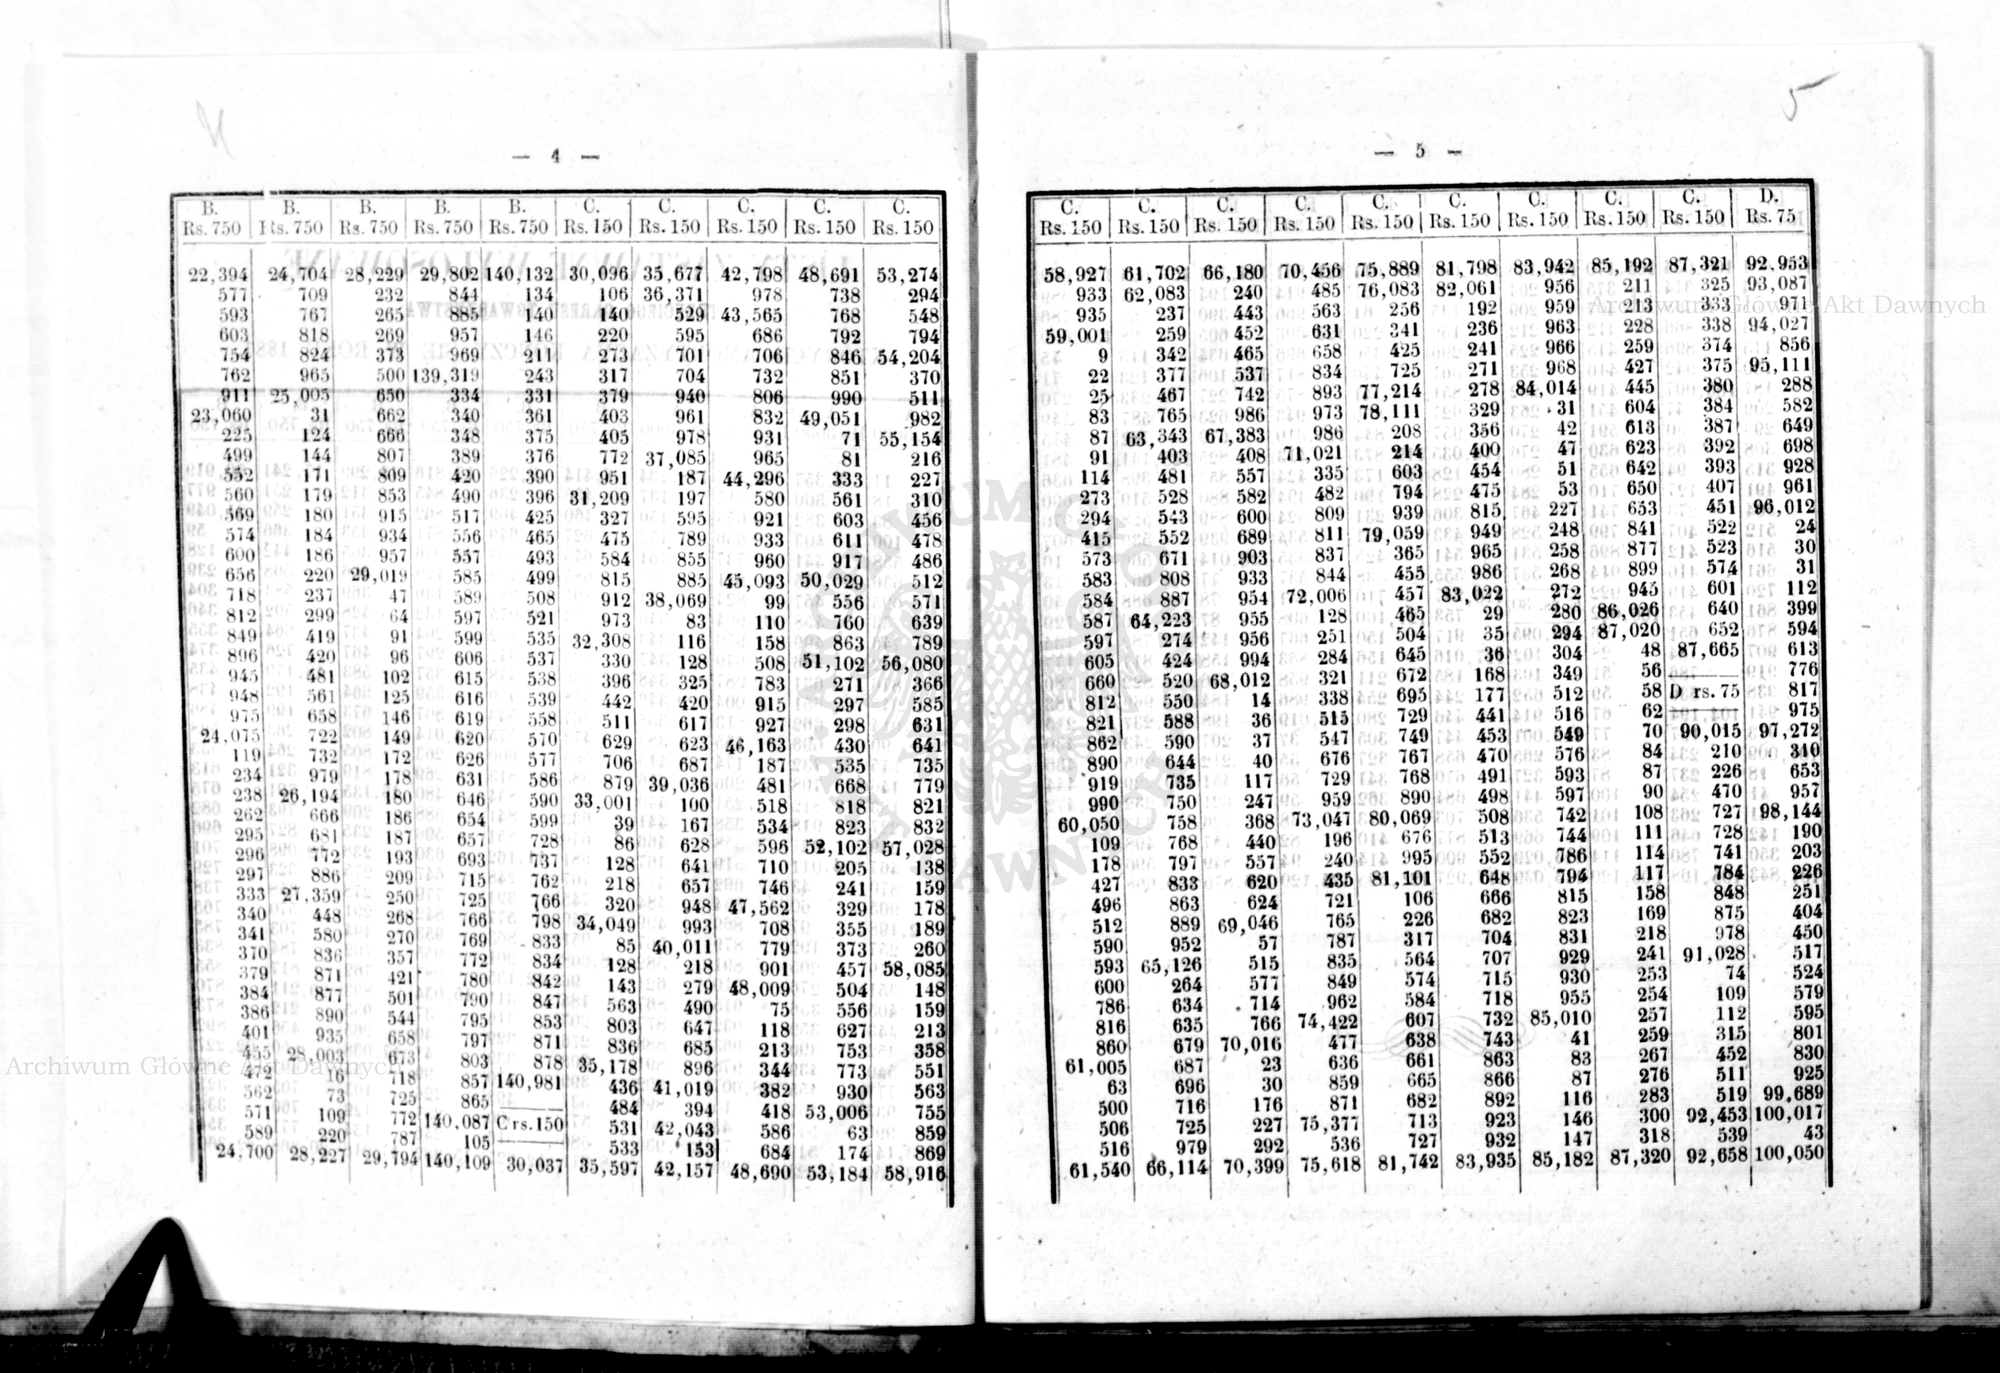 — 4 —
B. B. B. B. B. C. C. C. C. C.
Rs. 750 Rs. 750 Rs. 750 Rs. 750 Rs. 750 Rs. 150 Rs. 150 Rs. 150 Rs. 150 Rs. 150
22,394 24,704 28,229 29,802 140,132 30,096 35,677 42,798 48,691 53,274
577 709 232 844 134 106 36,371 978 738 294
593 767 265 885 140 140 529 43,565 768 548
603 818 269 957 146 220 595 686 792 794
754 824 373 969 211 273 701 706 846 54,204
762 965 500 139,319 243 317 704 732 851 370
911 25,005 650 334 331 379 940 806 990 511
23,060 31 662 340 361 403 961 832 49,051 982
225 124 666 348 375 405 978 931 71 55,154
499 144 807 389 376 772 37,085 965 81 216
552 171 809 420 390 951 187 44,296 333 227
560 179 853 490 396 31,209 197 580 561 310
569 180 915 517 425 327 595 921 603 456
574 184 934 556 465 475 789 933 611 478
600 186 957 557 493 584 855 960 917 486
656 220 29,019 585 499 815 885 45,093 50,029 512
718 237 47 589 508 912 38,069 99 556 571
812 299 64 597 521 973 83 110 760 639
849 419 91 599 535 32,308 116 158 863 789
896 420 96 606 537 330 128 508 51,102 56,080
945 481 102 615 538 396 325 783 271 366
948 561 125 616 539 442 420 915 297 585
975 658 146 619 558 511 617 927 298 631
24,075 722 149 620 570 629 623 46,163 430 641
119 732 172 626 577 706 687 187 535 735
234 979 178 631 586 879 39,036 481 668 779
238 26,194 180 646 590 33,001 100 518 818 821
262 666 186 654 599 39 167 534 823 832
295 681 187 657 728 86 628 596 52,102 57,028
296 772 193 693 737 128 641 710 205 138
297 886 209 715 762 218 657 746 241 159
333 27,359 250 725 766 320 948 47,562 329 178
340 448 268 766 798 34,049 993 708 355 189
341 580 270 769 833 85 40,011 779 373 260
370 836 357 772 834 128 218 901 457 58,085
379 871 421 780 842 143 279 48,009 504 148
384 877 501 790 847 563 490 75 556 159
386 890 544 795 853 803 647 118 627 213
401 935 658 797 871 836 685 213 753 358
455 28,003 673 803 878 35,178 896 344 773 551
472 16 718 857 140,981 436 41,019 382 930 563
562 73 725 865 484 394 418 53,006 755
571 109 772 140,087 C rs. 150 531 42,043 586 63 859
589 220 787 105 533 153 684 174 869
24,700 28,227 29,794 140,109 30,037 35,597 42,157 48,690 53,184 58,916
5
— 5 —
C. C. C. C. C. C. C. C. C. D.
Rs. 150 Rs. 150 Rs. 150 Rs. 150 Rs. 150 Rs. 150 Rs. 150 Rs. 150 Rs. 150 Rs. 75
58,927 61,702 66,180 70,456 75,889 81,798 83,942 85,192 87,321 92,953
933 62,083 240 485 76,083 82,061 956 211 325 93,087
935 237 443 563 256 192 959 213 333 971
59,001 259 452 631 341 236 963 228 338 94,027
9 342 465 658 425 241 966 259 374 856
22 377 537 834 725 271 968 427 375 95,111
25 467 742 893 77,214 278 84,014 445 380 288
83 765 986 973 78,111 329 31 604 384 582
87 63,343 67,383 986 208 356 42 613 387 649
91 403 408 71,021 214 400 47 623 392 698
114 481 557 335 603 454 51 642 393 928
273 528 582 482 794 475 53 650 407 961
294 543 600 809 939 815 227 653 451 96,012
415 552 689 811 79,059 949 248 841 522 24
573 671 903 837 365 965 258 877 523 30
583 808 933 844 455 986 268 899 574 31
584 887 954 72,006 457 83,022 272 945 601 112
587 64,223 955 128 465 29 280 86,026 640 399
597 274 956 251 504 35 294 87,020 652 594
605 424 994 284 645 36 304 48 87,665 613
660 520 68,012 321 672 168 349 56 776
812 550 14 338 695 177 512 58 D rs. 75 817
821 588 36 515 729 441 516 62 975
862 590 37 547 749 453 549 70 90,015 97,272
890 644 40 676 767 470 576 84 210 310
919 735 117 729 768 491 593 87 226 653
990 750 247 959 890 498 597 90 470 957
60,050 758 368 73,047 80,069 508 742 108 727 98,144
109 768 440 196 676 513 744 111 728 190
178 797 557 240 995 552 786 114 741 203
427 833 620 435 81,101 648 794 117 784 226
496 863 624 721 106 666 815 158 848 251
512 889 69,046 765 226 682 823 169 875 404
590 952 57 787 317 704 831 218 978 450
593 65,126 515 835 564 707 929 241 91,028 517
600 264 577 849 574 715 930 253 74 524
786 634 714 962 584 718 955 254 109 579
816 635 766 74,422 607 732 85,010 257 112 595
860 679 70,016 477 638 743 41 259 315 801
61,005 687 23 636 661 863 83 267 452 830
63 696 30 859 665 866 87 276 511 925
500 716 176 871 682 892 116 283 519 99,689
506 725 227 75,377 713 923 146 300 92,453 100,017
516 979 292 536 727 932 147 318 539 43
61,540 66,114 70,399 75,618 81,742 83,935 85,182 87,320 92,658 100,050
Archiwum Główne Akt Dawnych
Archiwum Główne Akt Dawnych